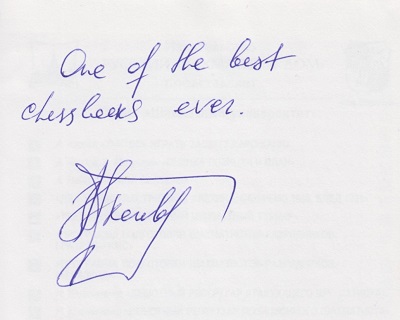 One of the best
chessbooks ever.